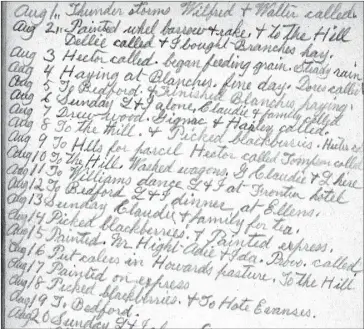 Aug 1,, Thunder storms Wilfred & Walter called.
Aug 2,, Painted whel barrow & rake, & to the Hill
Dellie called & I bought Branches hay.
Aug 3 Hector called. began feeding grain. Steady rain
Aug 4 Haying at Blanches. fine day. Dows called
Aug 5 To Bedford. & finished Blanches haying
Aug 6 Sunday L & I alone, Claudie & family called
Aug 7 Drew wood. Gignac & Hapley called.
Aug 8 To the mill. & Picked blackberries.
Aug 9 To Hills for parcel Hector called Tompson called
Aug 10 To the Hill. Washed wagons, G Claudie & L here
Aug 11 To Williams dance L & I at Frontia hotel
Aug 12 To Bedford L & I dinner at Ellens.
Aug 13 Sunday Claudie & family for tea.
Aug 14 Picked blackberries. & Painted express.
Aug 15 Painted. Mr Hight Adie & Ida. Provo. called
Aug 16 Put calves in Howards pasture. To the Hill
Aug 17 Painted on express
Aug 18 Picked blackberries. & To Hote Evanses.
Aug 19 To Bedford.
Aug 20 Sunday L & I